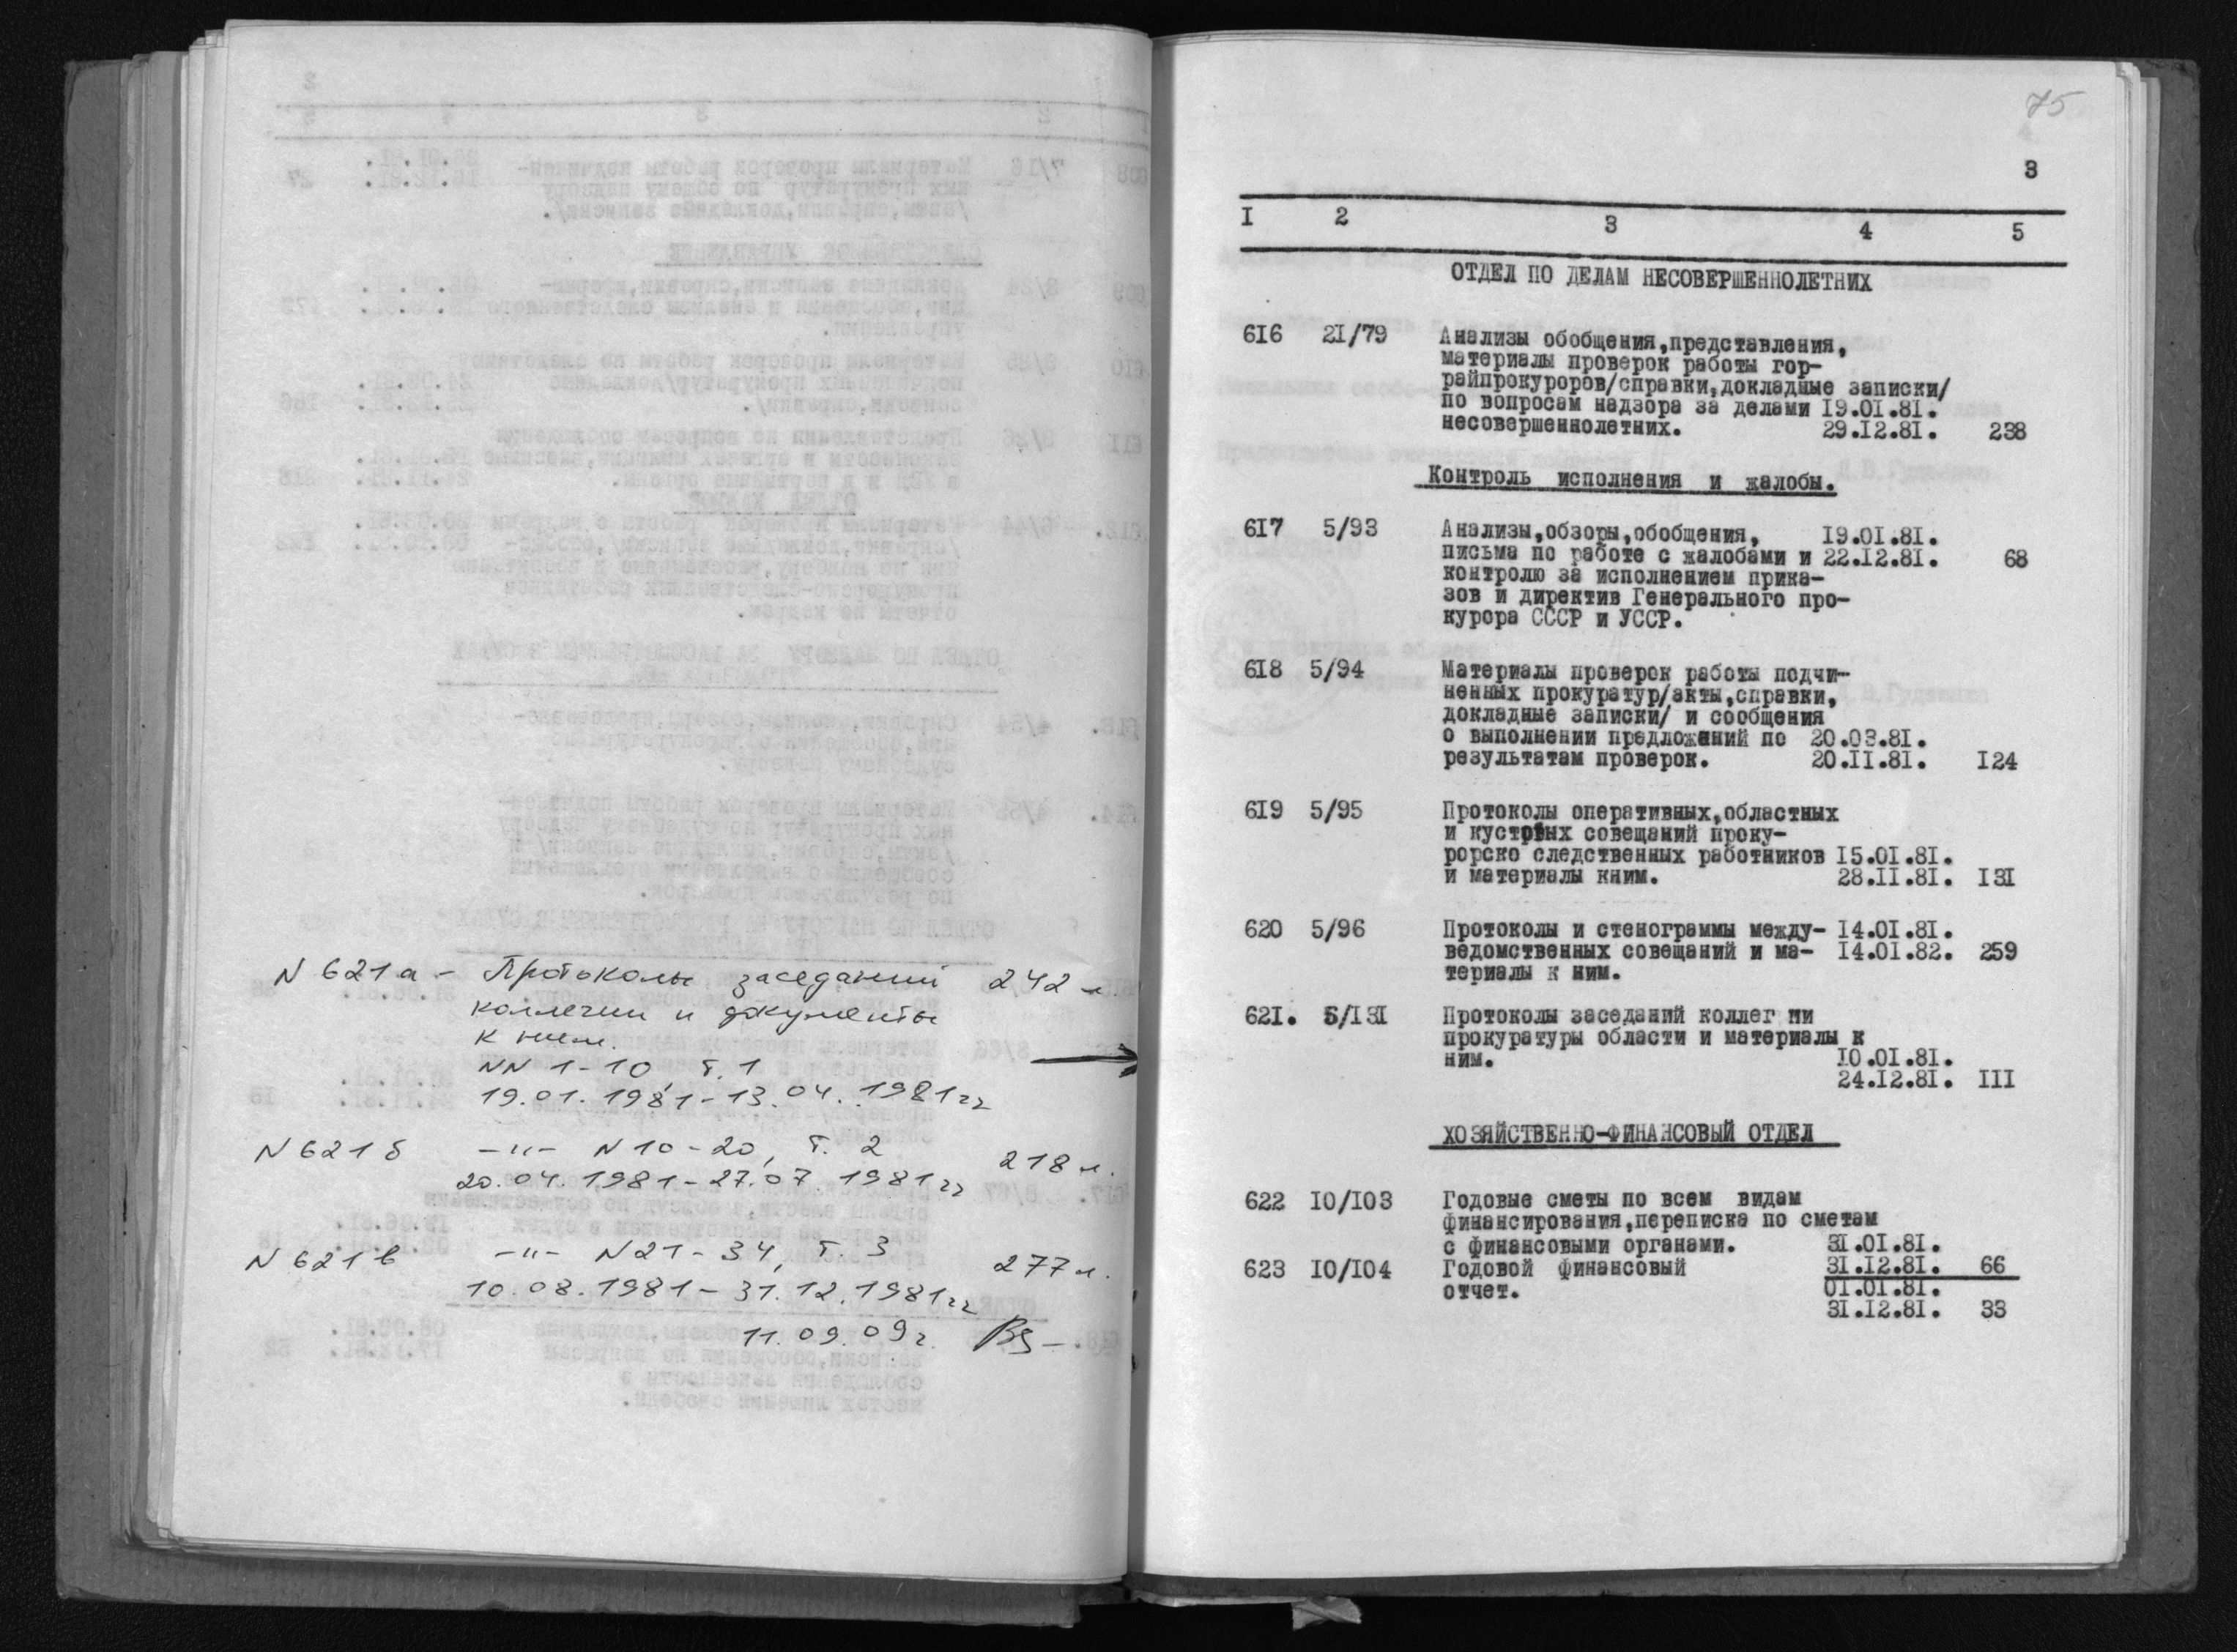 N 621а - Протоколы заседаний 242 л.
коллегии и документы
к ним.
NN 1-10 т. 1
19.01.1981-13.04.1981гг
N 621б -"- N 10-20, т. 2 218 л.
20.04.1981-27.07.1981гг
N 621в -"- N21-34, т. 3 277 л.
10.08.1981-31.12.1981гг
11.09.09г.
75
3
I 2 3 4 5
ОТДЕЛ ПО ДЕЛАМ НЕСОВЕРШЕННОЛЕТНИХ
616 2I/79 Анализы обобщения,представления,
материалы проверок работы гор-
райпрокуроров/справки,докладные записки/
по вопросам надзора за делами I9.0I.8I.
несовершеннолетних. 29.I2.8I. 238
Контроль исполнения и жалобы.
6I7 5/93 Анализы,обзоры,обобщения, I9.0I.8I.
письма по работе с жалобами и 22.I2.8I. 68
контролю за исполнением прика-
зов и директив Генерального про-
курора СССР и УССР.
6I8 5/94 Материалы проверок работы подчи-
ненных прокуратур/акты,справки,
докладные записки/ и сообщения
о выполнении предложений по 20.03.8I.
результатам проверок. 20.II.8I. I24
6I9 5/95 Протоколы оперативных,областных
и кустовых совещаний проку-
рорско следственных работников I5.0I.8I.
и материалы кним. 28.II.8I. I3I
620 5/96 Протоколы и стенограммы между- I4.0I.8I.
ведомственных совещаний и ма- I4.0I.82. 259
териалы к ним.
62I. 5/I3I Протоколы заседаний коллег ии
прокуратуры области и материалы к
ним. I0.0I.8I.
24.I2.8I. III
ХОЗЯЙСТВЕННО-ФИНАНСОВЫЙ ОТДЕЛ
622 I0/I03 Годовые сметы по всем видам
финансирования,переписка по сметам
с финансовыми органами. 3I.0I.8I.
623 I0/I04 Годовой финансовый 3I.I2.8I. 66
отчет. 0I.0I.8I.
3I.I2.8I. 33